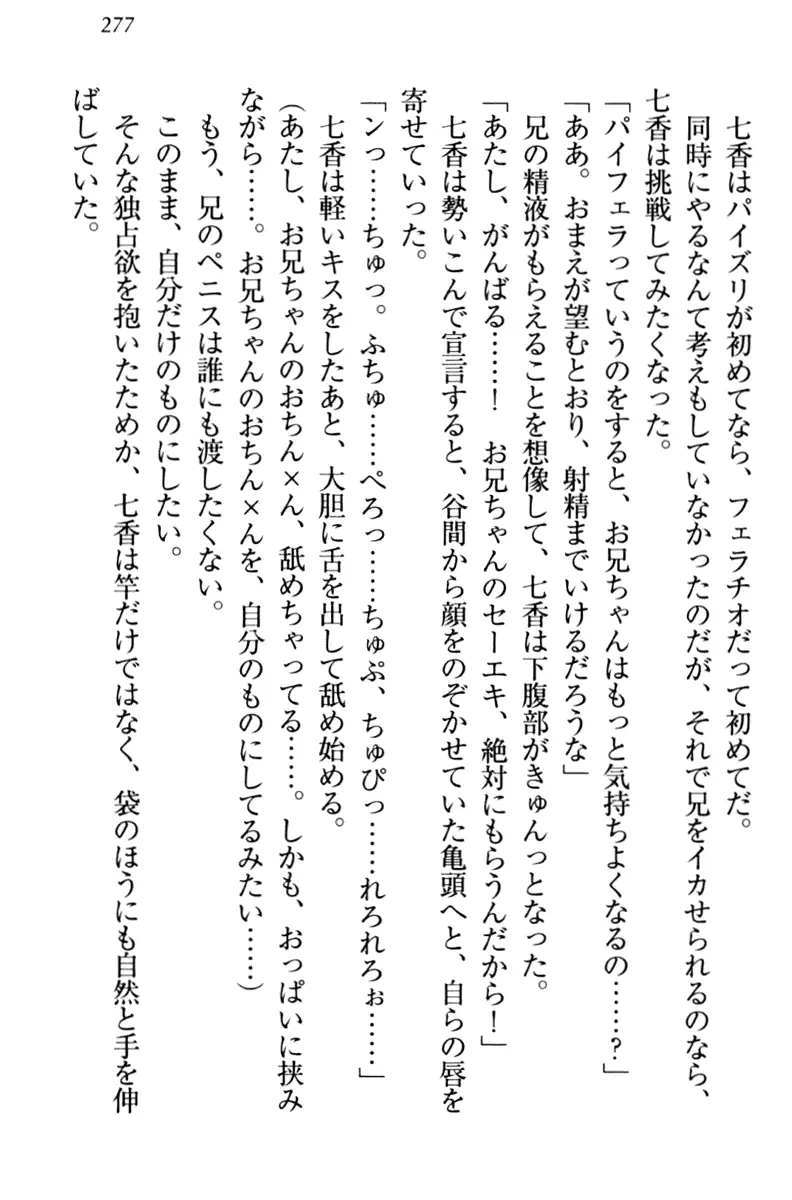 277
七香はパイズリが初めてなら、フェラチオだって初めてだ。
同時にやるなんて考えもしていなかったのだが、それで兄をイカせられるのなら、
七香は挑戦してみたくなった。
「パイフェラっていうのをすると、お兄ちゃんはもっと気持ちよくなるの……?」
「ああ。おまえが望むとおり、射精までいけるだろうな」
兄の精液がもらえることを想像して、七香は下腹部がきゅんっとなった。
「あたし、がんばる……! お兄ちゃんのセーエキ、絶対にもらうんだから!」
七香は勢いこんで宣言すると、谷間から顔をのぞかせていた亀頭へと、自らの唇を
寄せていった。
「ンっ……ちゅっ。ふちゅ……ぺろっ……ちゅぷ、ちゅぴっ……れろれろぉ……」
七香は軽いキスをしたあと、大胆に舌を出して舐め始める。
(あたし、お兄ちゃんのおちん×ん、舐めちゃってる……。しかも、おっぱいに挟み
ながら……。お兄ちゃんのおちん×んを、自分のものにしてるみたい……)
もう、兄のペニスは誰にも渡したくない。
このまま、自分だけのものにしたい。
そんな独占欲を抱いたためか、七香は竿だけではなく、袋のほうにも自然と手を伸
ばしていた。